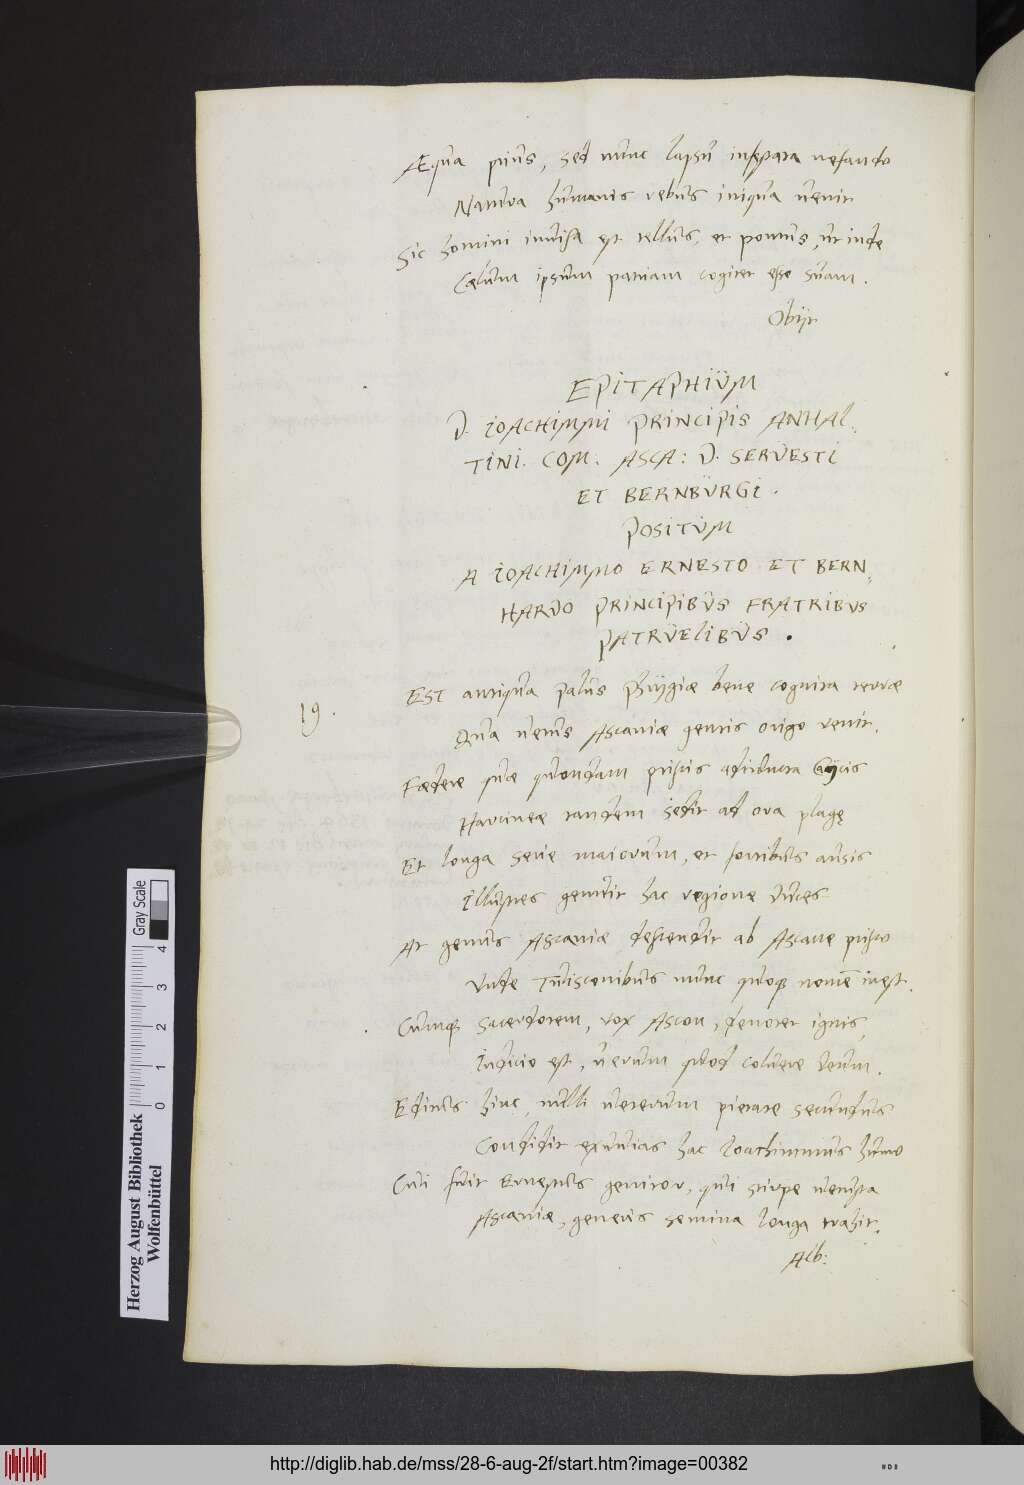 Æqua prius, sed nunc lapsu inseparata nefando
Natura humanis rebus iniqua venit
Sic homini invisa est tellus, et pontus, ut inde
Cælum ipsum patriam cogitet esse suam.
Obijt
EPITAPHIUM
D. IOACHIMMI PRINCIPIS ANHAL
TINI. COM. ASCA: D. SERVESTI
ET BERNBURGI.
POSITUM
A IOACHIMMO ERNESTO ET BERN
HARDO PRINCIPIBUS FRATRIBUS
PATRUELIBUS.
19.
EST antiqua palus Phrygiæ bene cognita terræ
Qua nemus Ascaniæ gentis origo venit.
Fœdere quæ quondam priscis adiuncta
Harcineæ tandem sedit ad ora plagę
Et longa serie maiorum, et fortibus ausis
Illustres genuit hac regione duces
At genus Ascaniæ descendit ab Ascane prisco
Unde Tuisconibus nunc quoque nomē inest.
Cumque sacerdotem, vox Ascon, denotet ignis,
Indicio est, verum quod coluere deum.
Editus hinc, nulli veterum pietate secundus
Condidit exuvias hac Ioachimmus humo
Cui fuit Ernestus genitor, qui stirpe venusta
Ascaniæ, generis semina longa trahit.
Alb:
Herzog August Bibliothek
Wolfenbüttel
Gray Scale
0 1 2 3 4
http://diglib.hab.de/mss/28-6-aug-2f/start.htm?image=00382